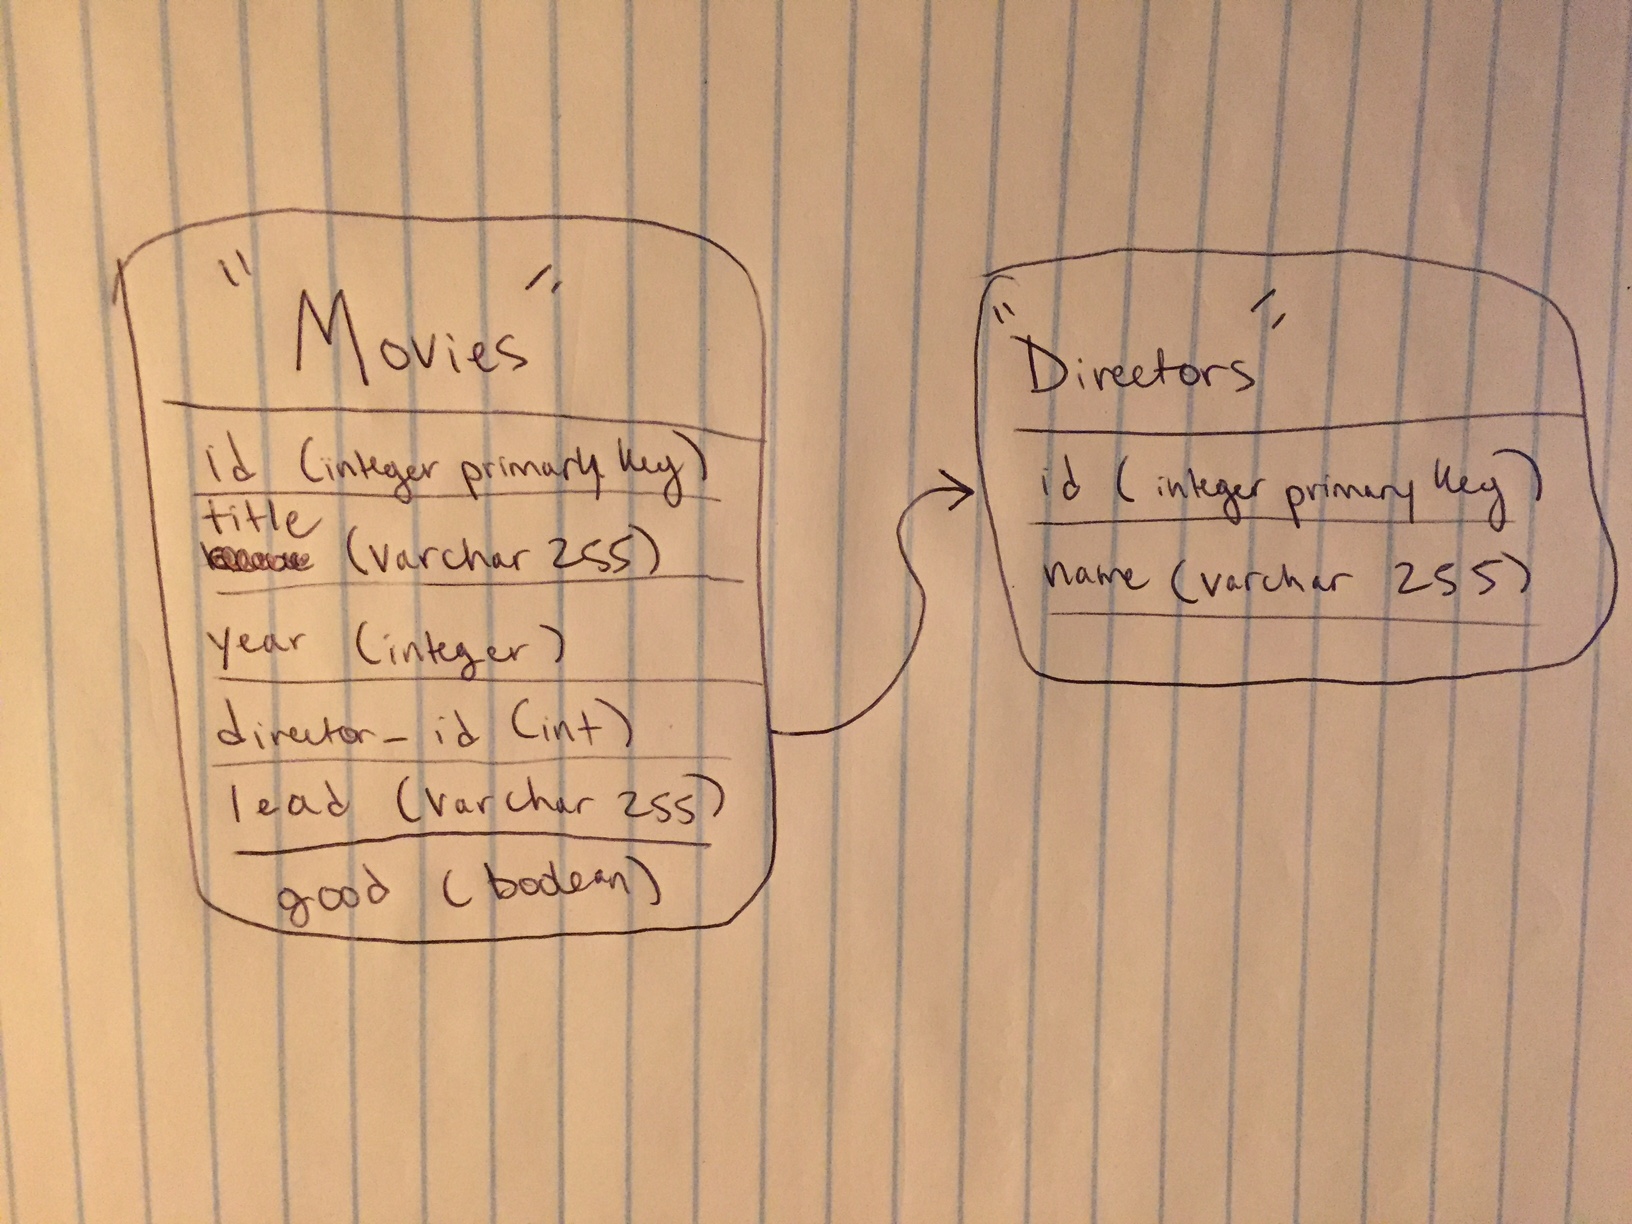 "Movies"
id (integer primary key)
title
(varchar 255)
year (integer)
director_id (int)
lead (varchar 255)
good (boolean)
"Directors"
id (integer primary key)
name (varchar 255)